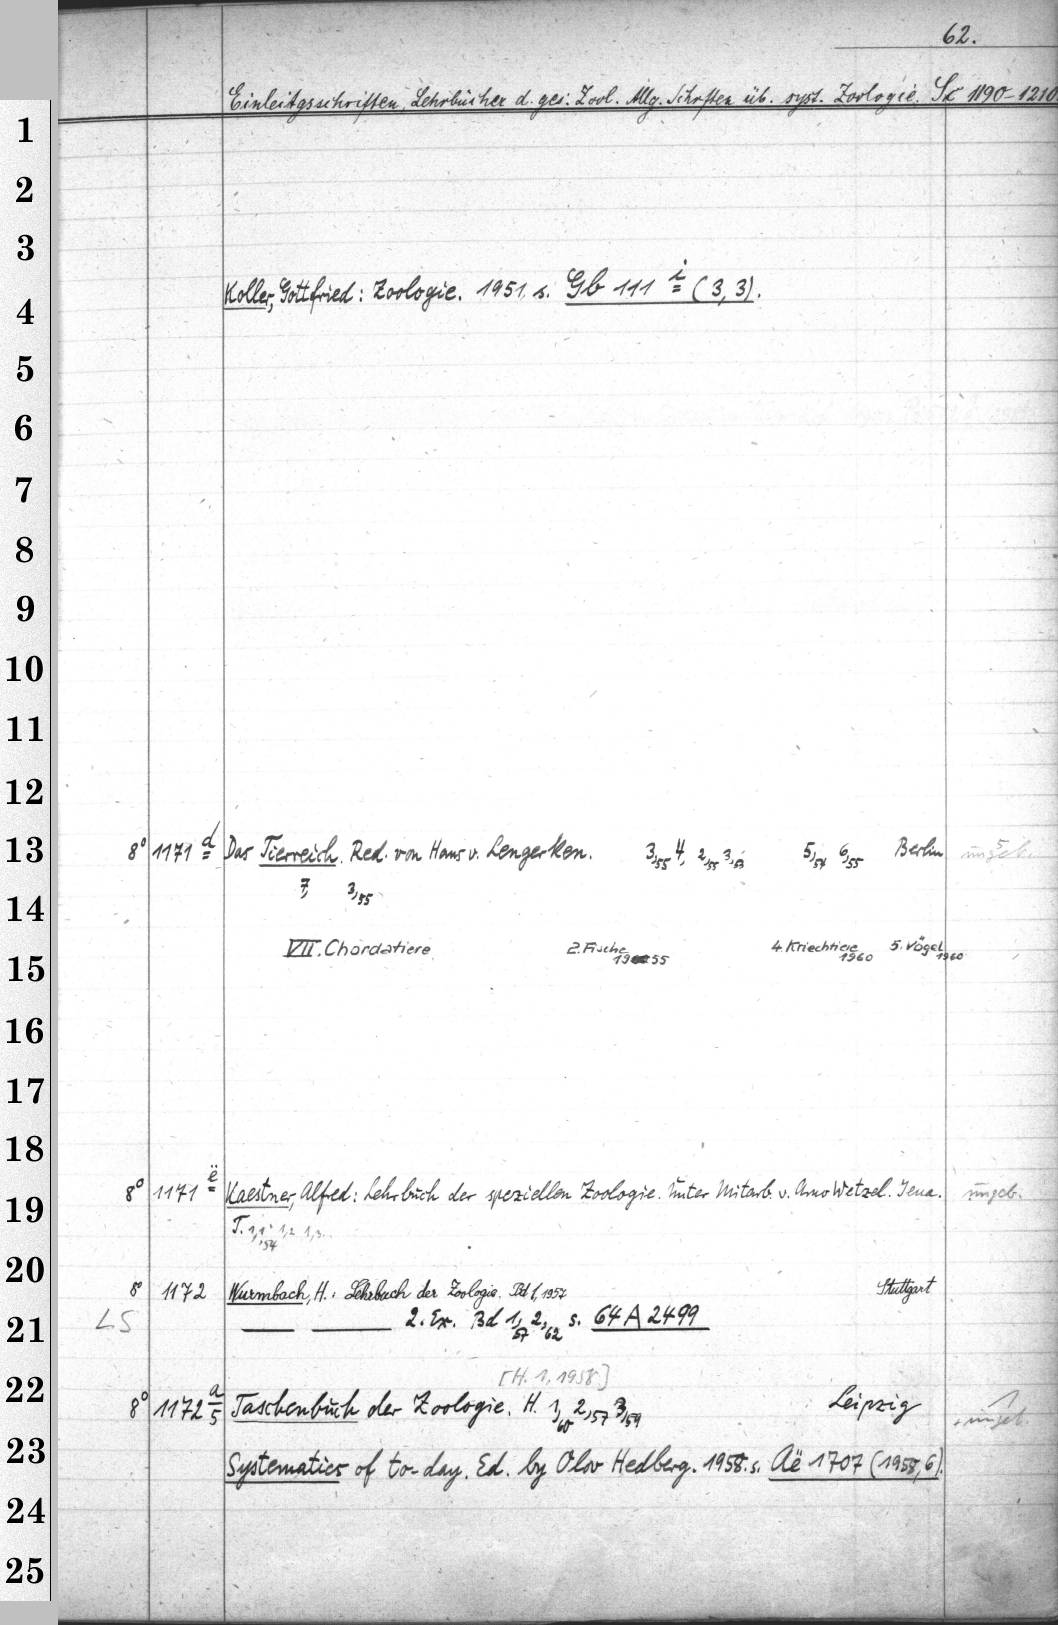 62.
Einleitgsschriften, Lehrbücher d. ges. Zool. Allg. Schriften üb. syst. Zoologie. Sx 1190-1210
1
2
3
Koller, Gottfried: Zoologie. 1951 s. Gb 111 i (3,3).
4
5
6
7
8
9
10
11
12
13 8° 1171 d Das Tierreich. Red. von Hans v. Lengerken. 3,55 4, 2,55 3, 5,54 6,55 Berlin 5 ungeb.
7, 3,55
14
VII. Chordatiere 2. Fische 1955 4. Kriechtiere 1960 5. Vögel 1960
15
16
17
18
8° 1171 ë Kaestner, Alfred: Lehrbuch der speziellen Zoologie. Unter Mitarb. v. Arno Wetzel. Jena. ungeb.
19 T. 1,1 54 1,2 1,3.
20
8° 1172 Wurmbach, H.: Lehrbuch der Zoologie. Bd 1, 1957 Stuttgart
21 LS 2. Ex. Bd 1,57 2,62 s. 64 A 2499
[H. 1, 1958]
22 8° 1172 a/5 Taschenbuch der Zoologie. H. 1,60 2,57 3,59 Leipzig 1 ungeb.
23 Systematics of to-day. Ed. by Olov Hedberg. 1958. s. Aë 1707 (1958,6).
24
25